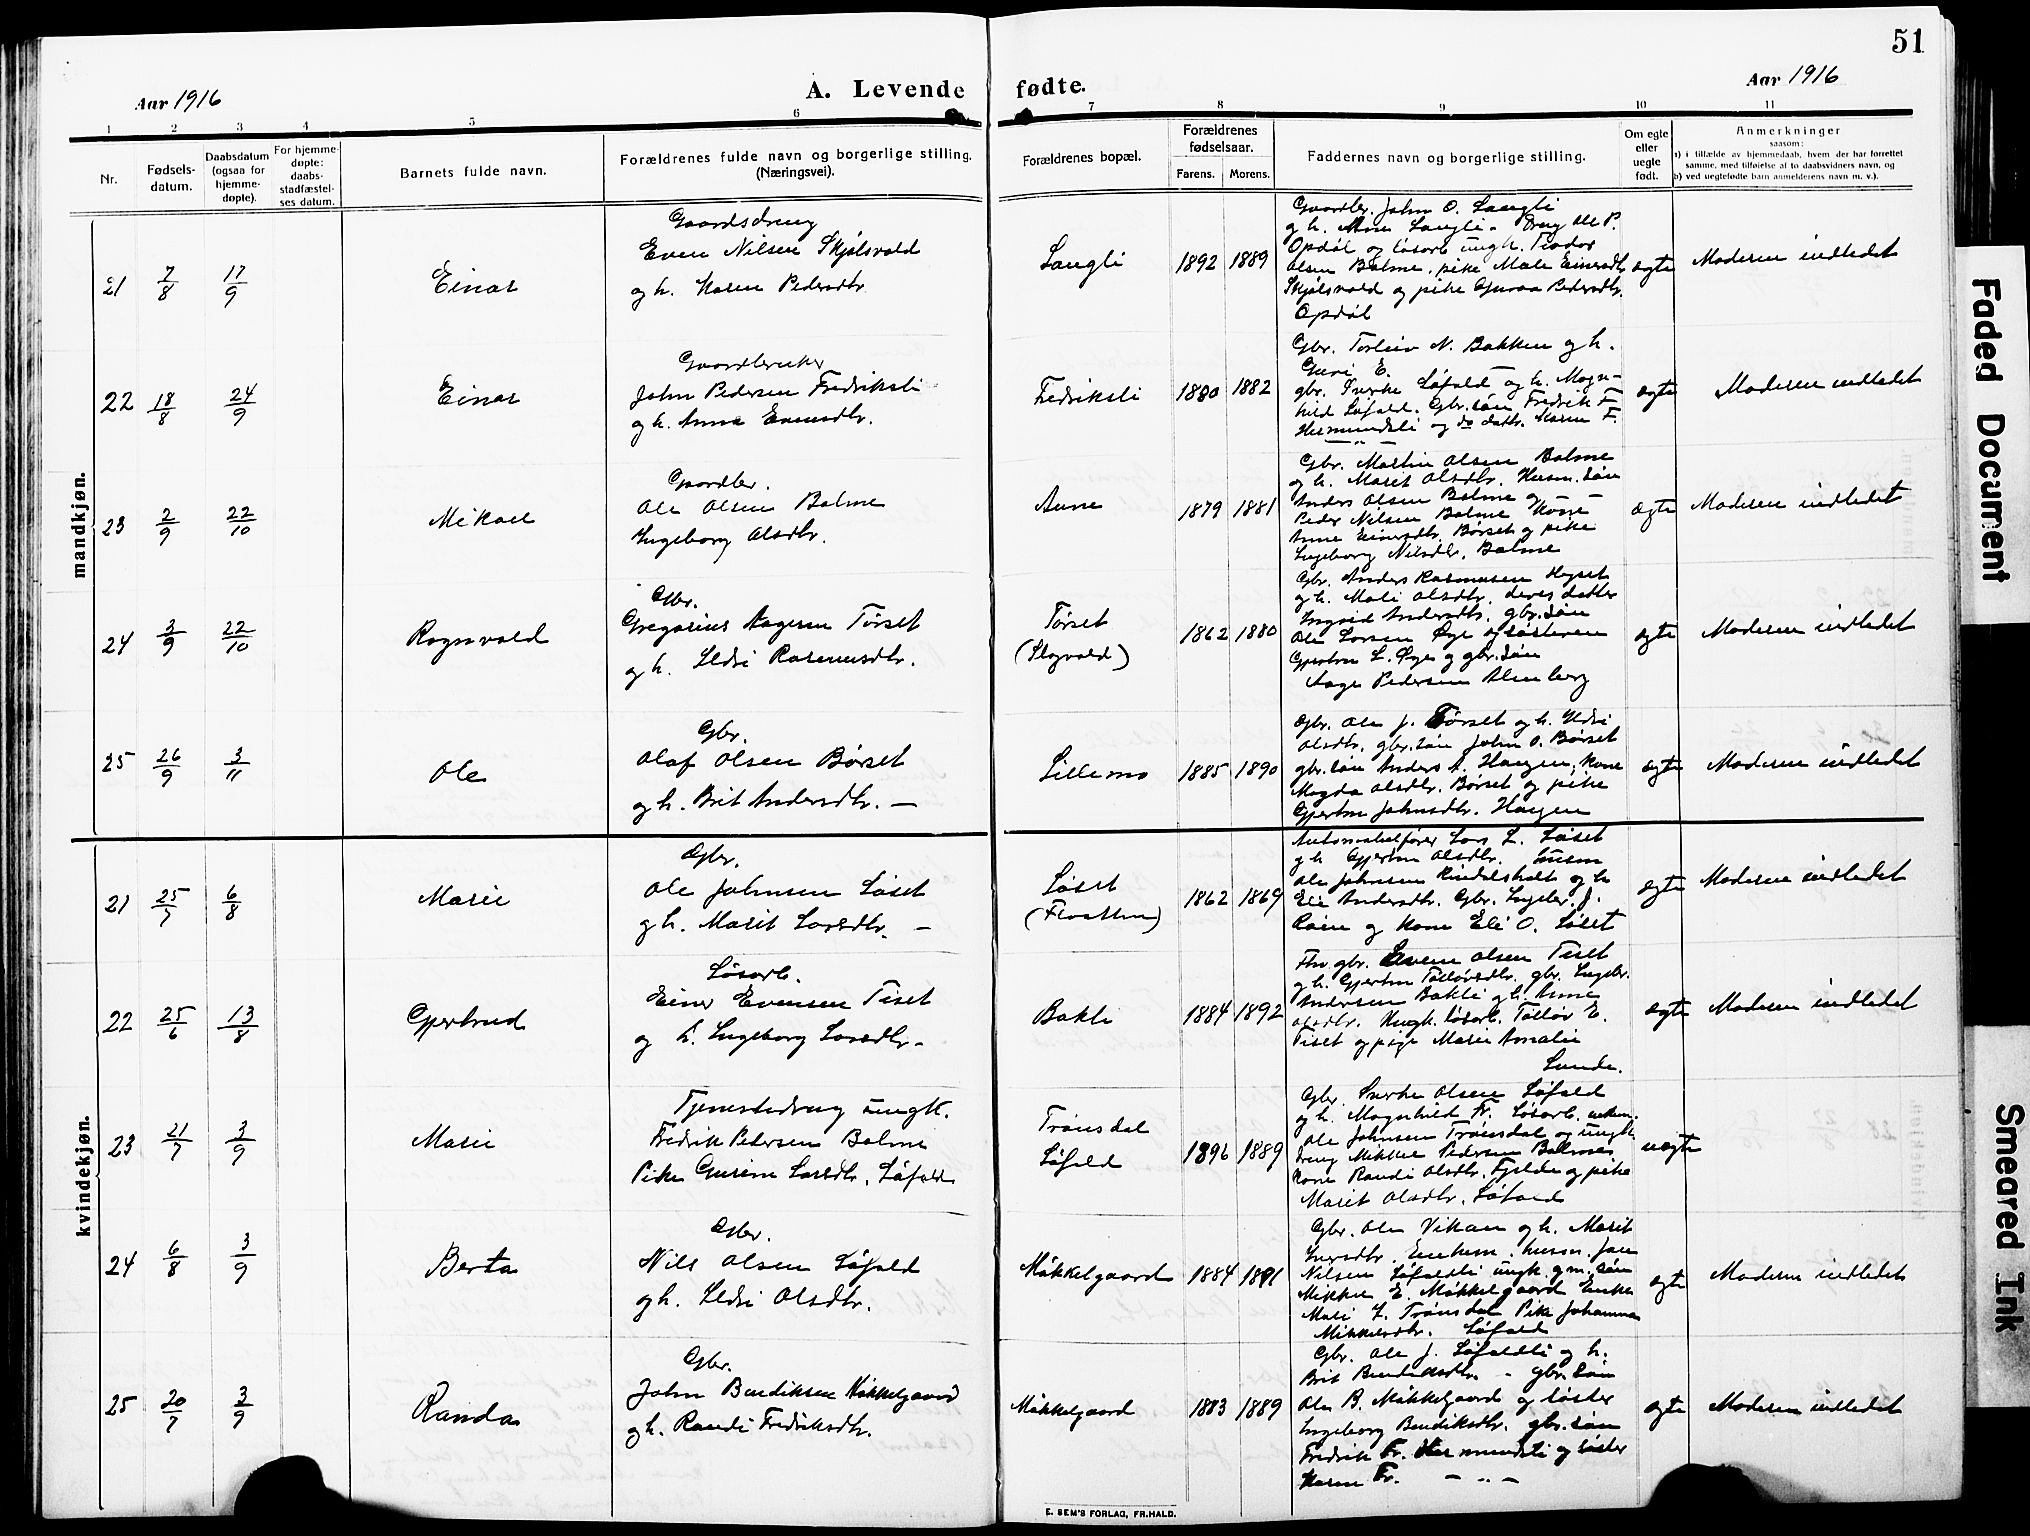 51
Aar 1916
A. Levende fødte.
Aar 1916
1 2 3 4 5 6 7 8 9 10 11
Nr.
Fødsels-
datum.
Daabsdatum
(ogsaa for
hjemme-
døpte).
For hjemme-
døpte:
daabs-
stadfæstel-
ses datum.
Barnets fulde navn.
Forældrenes fulde navn og borgerlige stilling.
(Næringsvei).
Forældrenes bopæl.
Forældrenes
fødselsaar.
Farens. Morens.
Faddernes navn og borgerlige stilling.
Om egte
eller
uegte
født.
Anmerkninger
saasom:
a) i tilfælde av hjemmedaab, hvem der har forrettet
samme, med tilføielse af to daabsvidners navn, og
b) ved uegtefødte barn anmelderens navn m. v.).
mandkjøn.
21 7/8 17/9
Einar
Gaardsdreng
Even Nilsen Skjølsvold
og h. Maren Pedersdtr.
Langli
1892 1889
Gaardbr. John O. Langli
og h. Langli. Dreng Ole P.
Opdøl og løsarb. ungk. Teodor
Olsen Bolme, pike Male Einersdtr.
Skjølsvold og pike Guroa Pedersdtr.
Opdøl
egte
Moderen indledet
22 18/8 24/9
Einar
Gaardbruker
John Pedersen Fredriksli
og h. Anna Evensdtr.
Fredriksli
1880 1882
Gbr. Torleiv N. Bakken og h.
Guri E. —
gbr. Sverke Løfald og h. Magn-
hild Løfald. Gbr. søn Fredrik F.
Hermundsli og do datr. Maren F.
— „ —
egte
Moderen indledet
23 2/9 22/10
Mikael
Gaardbr.
Ole Olsen Bolme
Ingeborg Olsdtr.
Aune
1879 1881
Gbr. Martin Olsen Bolme
og h. Marit Olsdtr. Husm. søn
Anders Olsen Bolme og — —
Peder Nilsen Bolme Kone
Anne Einersdtr. Børset og pike
Ingeborg Nilsdtr. Bolme
egte
Moderen indledet
24 3/9 22/10
Ragnvald
Gbr.
Gregorius Aagesen Tørset
og h. Ildri Rasmusdtr.
Tørset
(Slogvold)
1862 1880
Gbr. Anders Rasmusen Høset
og h. Mali Olsdtr. deres datter
Ingrid Andersdtr. gbr. søn
Ole Larsen Øye og søsteren
Gjertru L. Øye og gbr. søn
Aage Pedersen Almberg
egte
Moderen indledet
25 26/9 3/11
Ole
Gbr.
Olaf Olsen Børset
og h. Brit Andersdtr. —
Lillemo
1885 1890
Gbr. Ole J. Tørset og h. Ildri
Olsdtr. gbr. søn John O. Børset
gbr. søn Anders A. Haugen, Kone
Magda Olsdtr. Børset og pike
Gjertru Johnsdtr. Haugen
egte
Moderen indledet
kvindekjøn.
21 25/7 6/8
Marie
Gbr.
Ole Johnsen Løset
og h. Marit Larsdtr. —
Løset
(Flaatten)
1862 1869
Automobilfører Lars L. Løset
og h. Gjertru Olsdtr. husm
Ole Johnsen Rindalsholt og h
Eli Andersdtr. Gbr. Ingebr. J.
Røen og Kone Eli O. Løset
egte
Moderen indledet
22 25/6 13/8
Gjertrud
Løsarb.
Einer Evensen Tiset
og h. Ingeborg Larsdtr. —
Bakli
1884 1892
Fhv. gbr. Even Olsen Tiset
og h. Gjertru Tolløvsdtr. gbr. Ingebr.
Andersen Bakli og h. Anne
Olsdtr. Ungk. løsarb. Tolløv E.
Tiset og pige Marie Amalie
Lunde.
egte
Moderen indledet
23 21/7 3/9
Marie
Tjenestedreng ungk.
Fredrik Pedersen Bolme
Pike Gurine Larsdtr. Løfald
Trønsdal
Løfald
1896 1889
Gbr. Sverke Olsen Løfald
og h. Magnhild Fr. Løsarb. enkem.
Ole Johnsen Trønsdal og ungk.
dreng Mikkel Pedersen Bolme,
Kone Randi Olsdtr. Fjelde og pike
Marit Olsdtr. Løfald
uegte
24 6/8 3/9
Berta
Gbr.
Nils Olsen Løfald
og h. Ildri Olsdtr.
Møkkelgaard
1884 1891
Gbr. Ole Vikan og h. Marit
Iversdtr. Enkem. husm. Jon
Nilsen Løfaldli ungk. gm. søn
Mikkel E. Møkkelgaard Enke
Mari J. Trønsdal Pike Johanna
Mikkelsdtr. Løfald
egte
Moderen indledet
25 20/7 3/9
Randa
Gbr.
John Bendiksen Møkkelgaard
og h. Randi Fredriksdtr.
Møkkelgaard
1883 1889
Gbr. Ole J. Løfaldli og h.
Brit Bendiksdtr. – gbr. søn
Ole B. Møkkelgaard og søster
Ingeborg Bendiksdtr. gbr. søn
Fredrik Fr. Hermundsli og søster
Maren Fr. — „ —
egte
Moderen indledet
E. SEM'S FORLAG, FR.HALD.
Faded Document
Smeared Ink